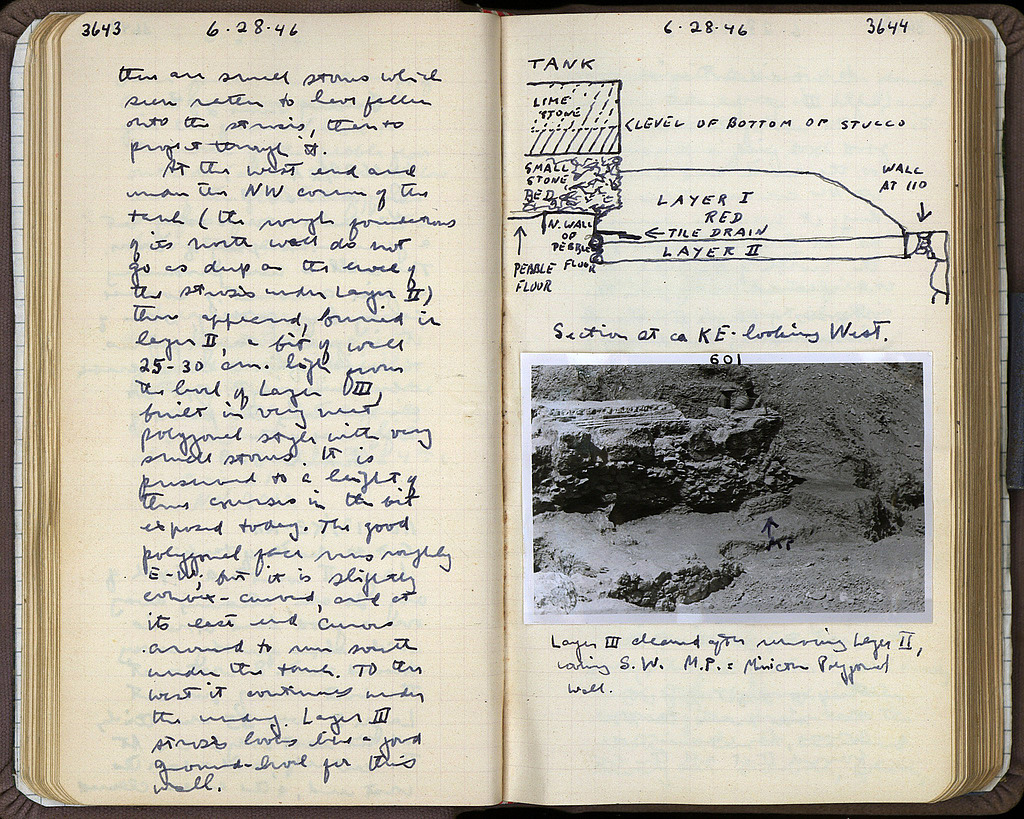 3643
6-28-46
there are small stones which
seem rather to have fallen
onto the strosis, than to
project through it.
At the west end and
under the NW corner of the
tank (the rough foundations
of its north wall do not
go as deep as the level of
the strosis under Layer II)
there appeared, buried in
layer II, a bit of wall
25-30 cm. high from
the level of Layer III,
built in very neat
polygonal style with very
small stones. It is
preserved to a height of
three courses in the bit
exposed today. The good
polygonal face runs roughly
E-W, but it is slightly
convex-curved, and at
its east end curves
around to run south
under the tank. To the
west it continues under
the
Layer III
strosis looks like a good
ground-level for this
wall.
6-28-46
3644
TANK
LIME
STONE
<LEVEL OF BOTTOM OF STUCCO
SMALL
STONE
BED
WALL
AT 110
LAYER I
RED
N. WALL
OF
PEBBLE
FLOOR
←TILE DRAIN
LAYER II
PEBBLE
FLOOR
Section at ca KE-looking West.
601
M.P.
Layer III cleaned after removing Layer II,
S.W. M.P. = Polygonal
wall.